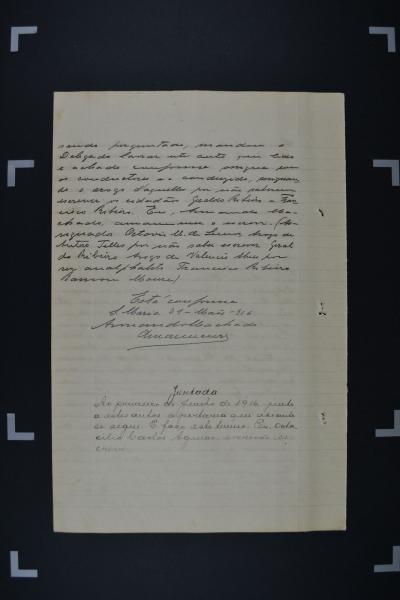 sendo perguntado, mandou o
Delegado lavrar este auto que lido
e achado conforme assigna com
os conductores e o conduzido, assignan-
do a rogo d'aquelles por não saberem
escrever os cidadãos Geraldo Ribeiro e Fran-
cisco Ribeiro. Eu, Armando Ma-
chado, amanuense o escrevi. (As-
signados) Octavio M. de Lemos, Arogo de
Antão Telles por não saber escrever Geral-
do Ribeiro Arogo de Valencio por
ser analphabeto Francisco Ribeiro
Moura)
Está conforme
S. Maria 31-Maio-916
Armando Machado
Amanuense
Juntada
Ao primeiro de Junho de 1916, junto
a estes autos a portaria que adeante
se segue. E faço este termo. Eu, Octa-
cilio Carlos Aguiar, escrivão es-
crevi.